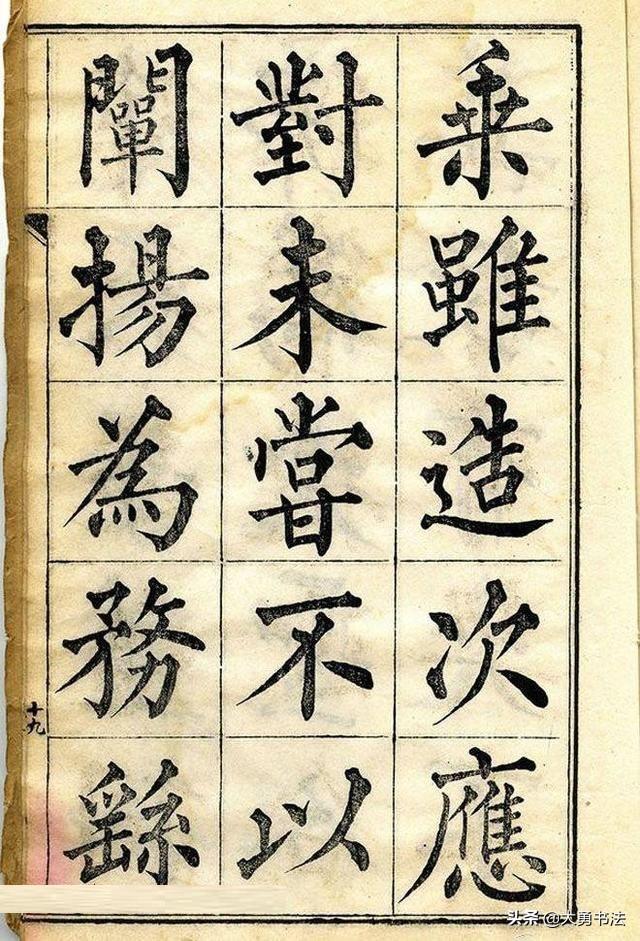 乗雖造次應
對未甞不以
闡揚為務繇
十九
头条 @大勇书法